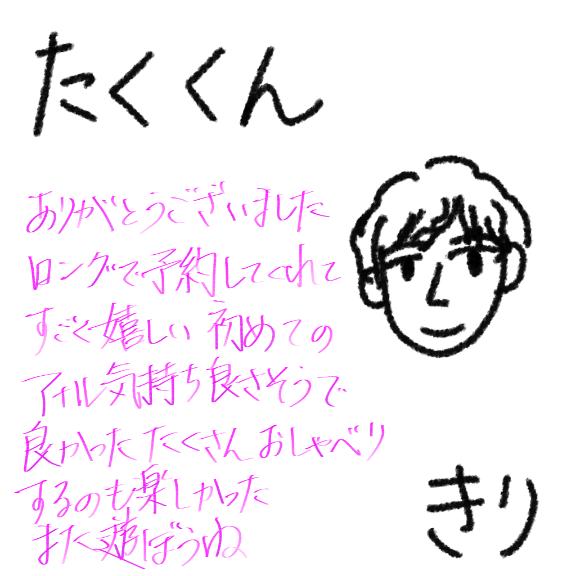 たくくん
ありがとうございました
ロングで予約してくれて
すごく嬉しい 初めての
アナル気持ち良さそうで
良かった たくさん おしゃべり
するのも楽しかった
また遊ぼうね
きり